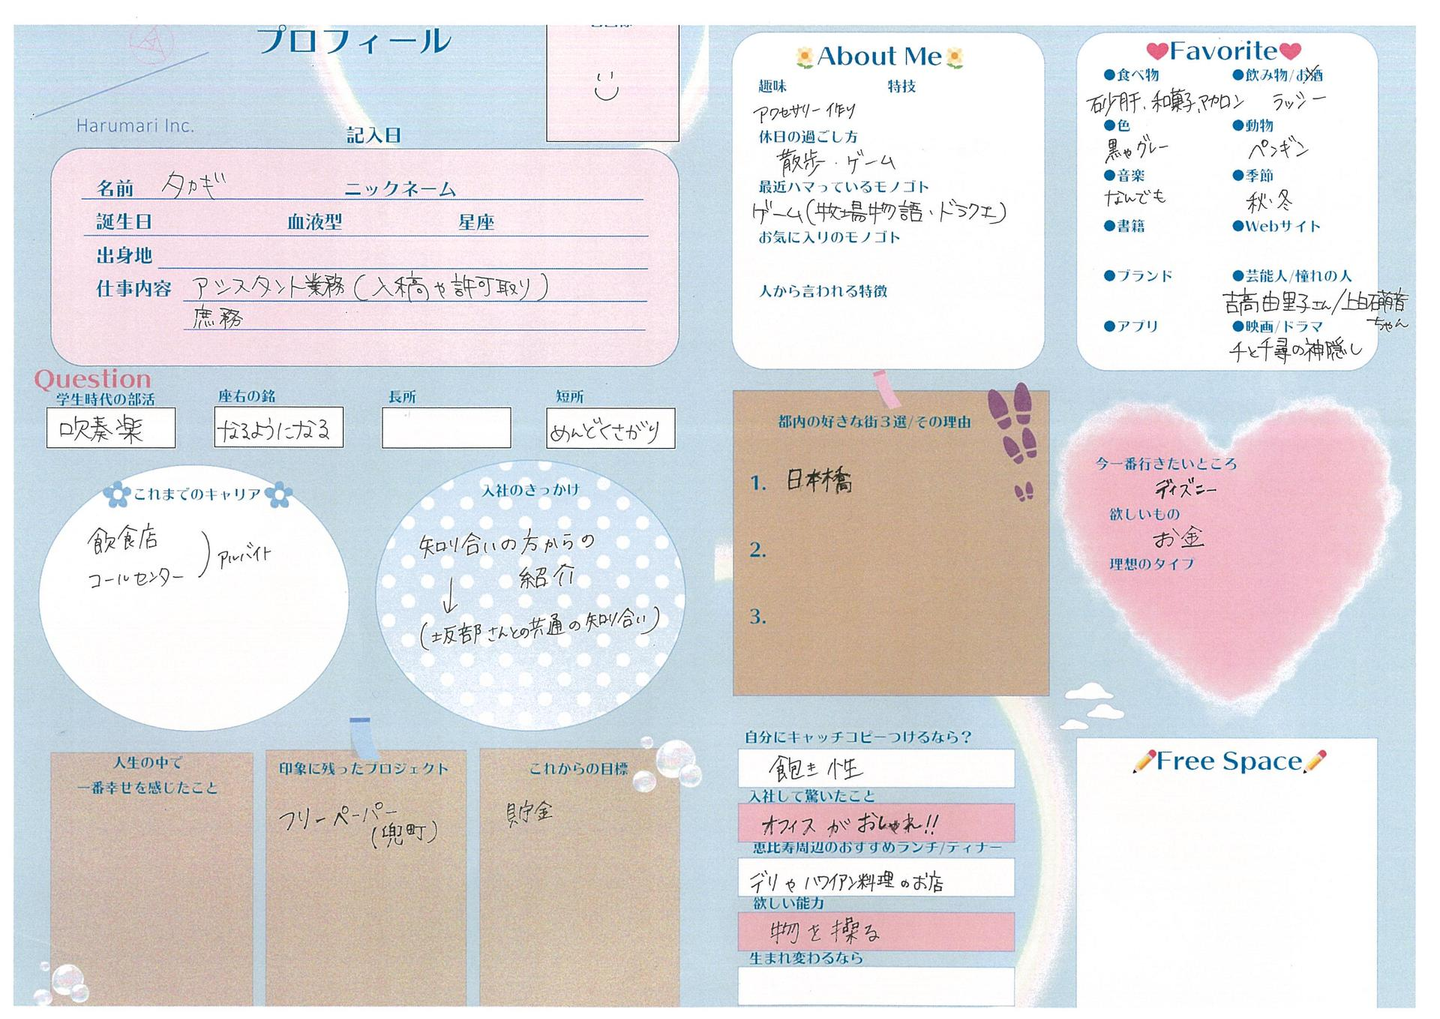 プロフィール
Harumari Inc.
記入日
名前 タカギ ニックネーム
誕生日 血液型 星座
出身地
仕事内容 アシスタント業務(入稿や許可取り)
庶務
Question
学生時代の部活 座右の銘 長所 短所
吹奏楽 なるようになる めんどくさがり
これまでのキャリア
飲食店
コールセンター
アルバイト
入社のきっかけ
知り合いの方からの
紹介
↓
(坂部さんとの共通の知り合い)
人生の中で
一番幸せを感じたこと
印象に残ったプロジェクト
フリーペーパー
(兜町)
これからの目標
貯金
About Me
趣味 特技
アクセサリー作り
休日の過ごし方
散歩・ゲーム
最近ハマっているモノゴト
ゲーム(牧場物語・ドラクエ)
お気に入りのモノゴト
人から言われる特徴
Favorite
●食べ物 ●飲み物/お酒
砂肝、和菓子、マカロン ラッシー
●色 ●動物
黒やグレー ペンギン
●音楽 ●季節
なんでも 秋・冬
●書籍 ●Webサイト
●ブランド ●芸能人/憧れの人
吉高由里子さん/上白石萌音
ちゃん
●アプリ ●映画/ドラマ
千と千尋の神隠し
都内の好きな街3選/その理由
1. 日本橋
2.
3.
今一番行きたいところ
ディズニー
欲しいもの
お金
理想のタイプ
自分にキャッチコピーつけるなら?
飽き性
入社して驚いたこと
オフィスがおしゃれ!!
恵比寿周辺のおすすめランチ/ディナー
デリやハワイアン料理のお店
欲しい能力
物を操る
生まれ変わるなら
Free Space